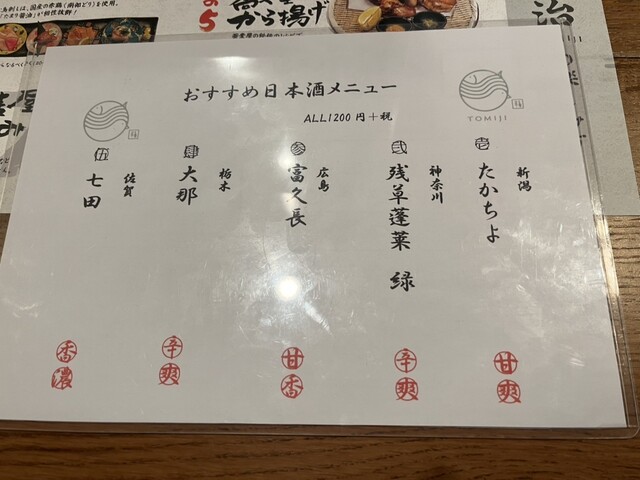 おすすめ日本酒メニュー
ALL1200円+税
TOMIJI
壱
新潟
たかちよ
甘爽
弐
神奈川
残草蓬莱 緑
辛爽
参
広島
富久長
甘香
肆
栃木
大那
辛爽
伍
佐賀
七田
香濃
から揚げ
治